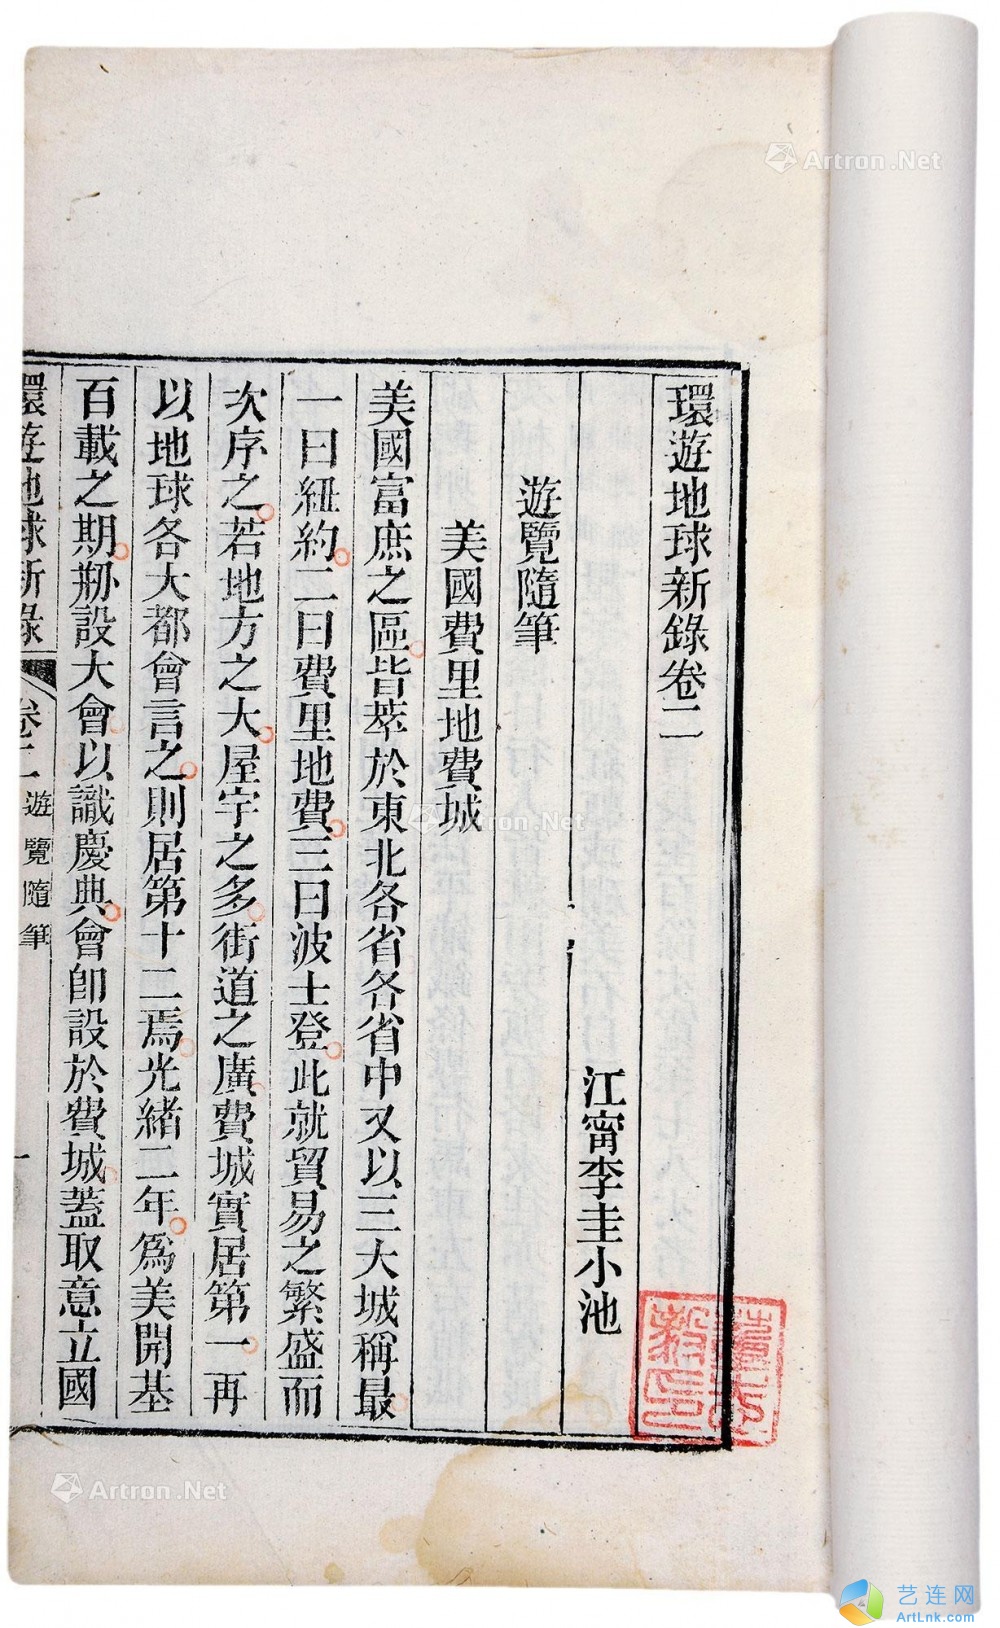 環遊地球新錄卷二
江甯李圭小池
遊覽隨筆
美國費里地費城
美國富庶之區皆萃於東北各省各省中又以三大城稱最
一曰紐約二曰費里地費三曰波士登此就貿易之繁盛而
次序之若地方之大屋宇之多街道之廣費城實居第一再
以地球各大都會言之則居第十二焉光緒二年爲美開基
百載之期剏設大會以識慶典會卽設於費城蓋取意立國
環遊地球新錄 卷二 遊覽隨筆 一
Artron.Net
Artron.Net
Artron.Net
艺连网
ArtLnk.com